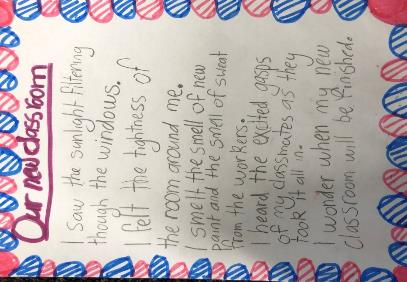 Our new classroom
I saw the sunlight filtering
though the windows.
I felt the tightness of
the room around me.
I smelt the smell of new
paint and the smell of sweat
from the workers.
I heard the excited gasps
of my classmates as they
took it all in.
I wonder when my new
classroom will be finished.